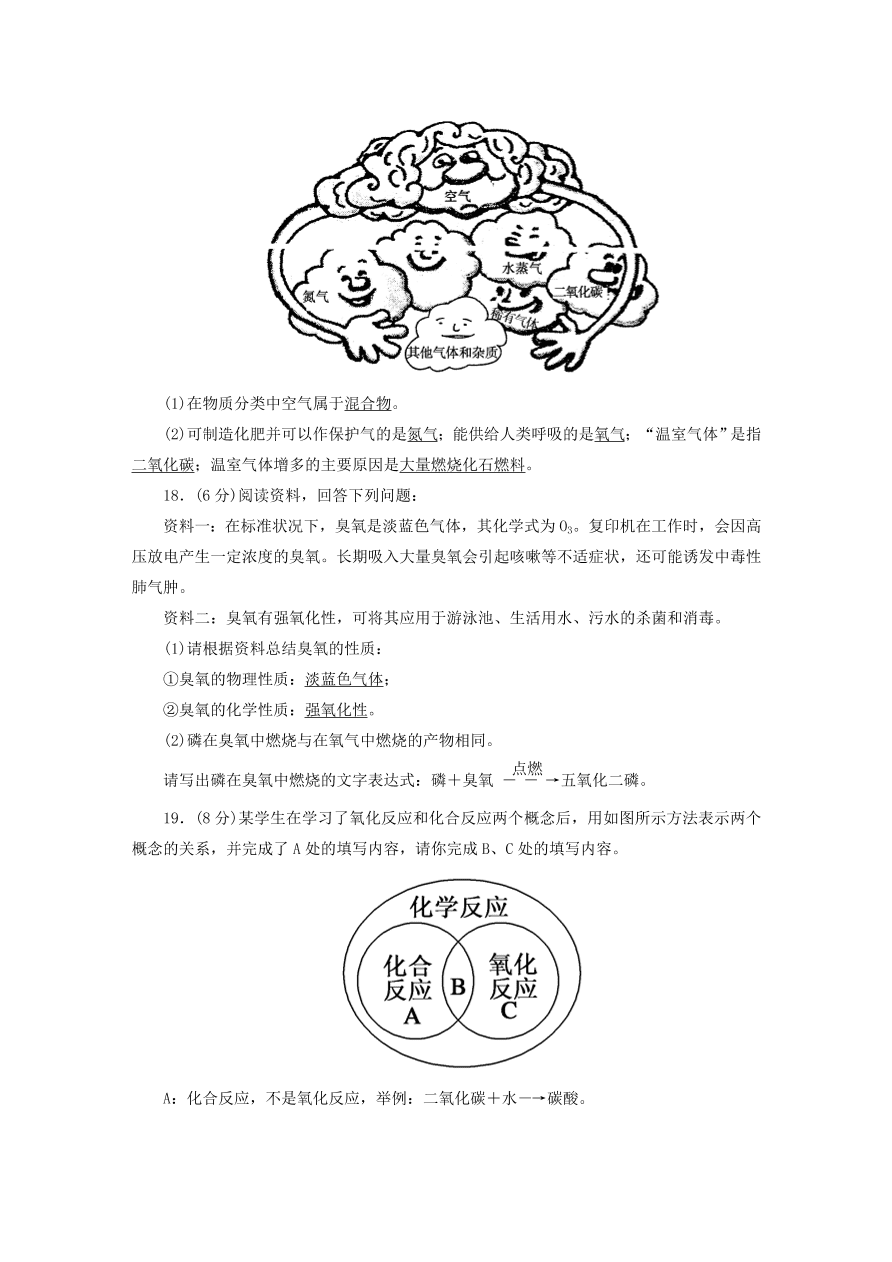 空气
水蒸气
氮气
二氧化碳
稀有气体
其他气体和杂质
(1)在物质分类中空气属于混合物。
(2)可制造化肥并可以作保护气的是氮气；能供给人类呼吸的是氧气；“温室气体”是指
二氧化碳；温室气体增多的主要原因是大量燃烧化石燃料。
18．(6 分)阅读资料，回答下列问题：
资料一：在标准状况下，臭氧是淡蓝色气体，其化学式为 O₃。复印机在工作时，会因高
压放电产生一定浓度的臭氧。长期吸入大量臭氧会引起咳嗽等不适症状，还可能诱发中毒性
肺气肿。
资料二：臭氧有强氧化性，可将其应用于游泳池、生活用水、污水的杀菌和消毒。
(1)请根据资料总结臭氧的性质：
①臭氧的物理性质：淡蓝色气体；
②臭氧的化学性质：强氧化性。
(2)磷在臭氧中燃烧与在氧气中燃烧的产物相同。
点燃
请写出磷在臭氧中燃烧的文字表达式：磷＋臭氧 ― ―→五氧化二磷。
19．(8 分)某学生在学习了氧化反应和化合反应两个概念后，用如图所示方法表示两个
概念的关系，并完成了 A 处的填写内容，请你完成 B、C 处的填写内容。
化学反应
化合
反应
A
B
氧化
反应
C
A：化合反应，不是氧化反应，举例：二氧化碳＋水―→碳酸。